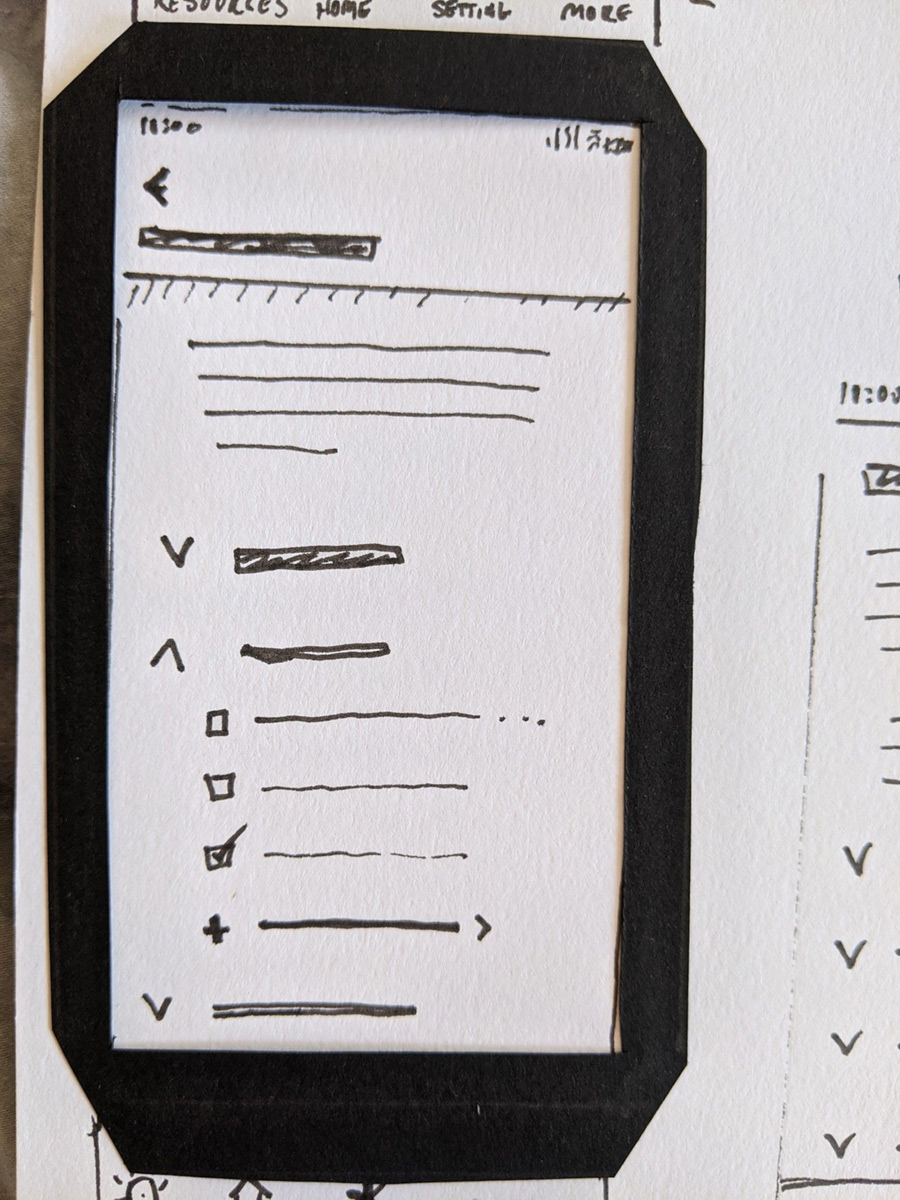 RESOURCES HOME SETTING MORE
10:00